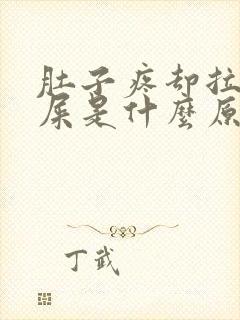 肚子疼却拉
屎是什麼原
丁武